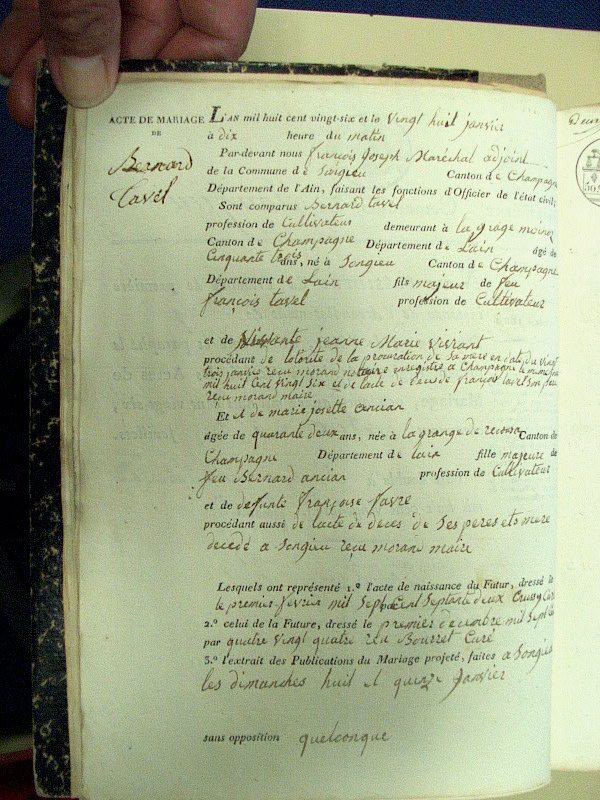 ACTE DE MARIAGE
DE
Bernard
tavel
L'AN mil huit cent vingt-six et le vingt huit janvier
à dix heure du matin
Par-devant nous françois Joseph Maréchal adjoint
de la Commune de Songieu Canton de Champagne
Département de l'Ain, faisant les fonctions d'Officier de l'état civil;
Sont comparus Bernard tavel
profession de Cultivateur demeurant à la grage moines
Canton de Champagne Département de Lain âgé de
Cinquante trois ans, né à Songieu Canton de Champagne
Département de Lain fils majeur de feu
françois tavel profession de Cultivateur
et de vivante jeanne Marie vivrant
procédant de lotorité de la procuration de sa mere en date du vingt
trois janvier reçu morand notaire enregistré a Champagne le meme jour
mil huit Cent Vingt Six et de lacte de deces de françois tavel son pere
reçu morand maire
Et A de marie josette ancian
âgée de quarante deux ans, née à la grange de Canton de
Champagne Département de lain fille majeure de
feu Bernard ancian profession de Cultivateur
et de defunte françoise favre
procédant aussi de lacte de deces de Ses peres et mere
decedé a Songieu reçu morand maire
Lesquels ont représenté 1.º l'acte de naissance du Futur, dressé le
le premier fevrier mil Sept Cent Septante deux Curé
2.º celui de la Future, dressé le premier decembre mil Sept Ce
par quatre vingt quatre reçu Bourret Curé
3.º l'extrait des Publications du Mariage projeté, faites a Songieu
les dimanches huit et quinze Janvier
sans opposition quelconque